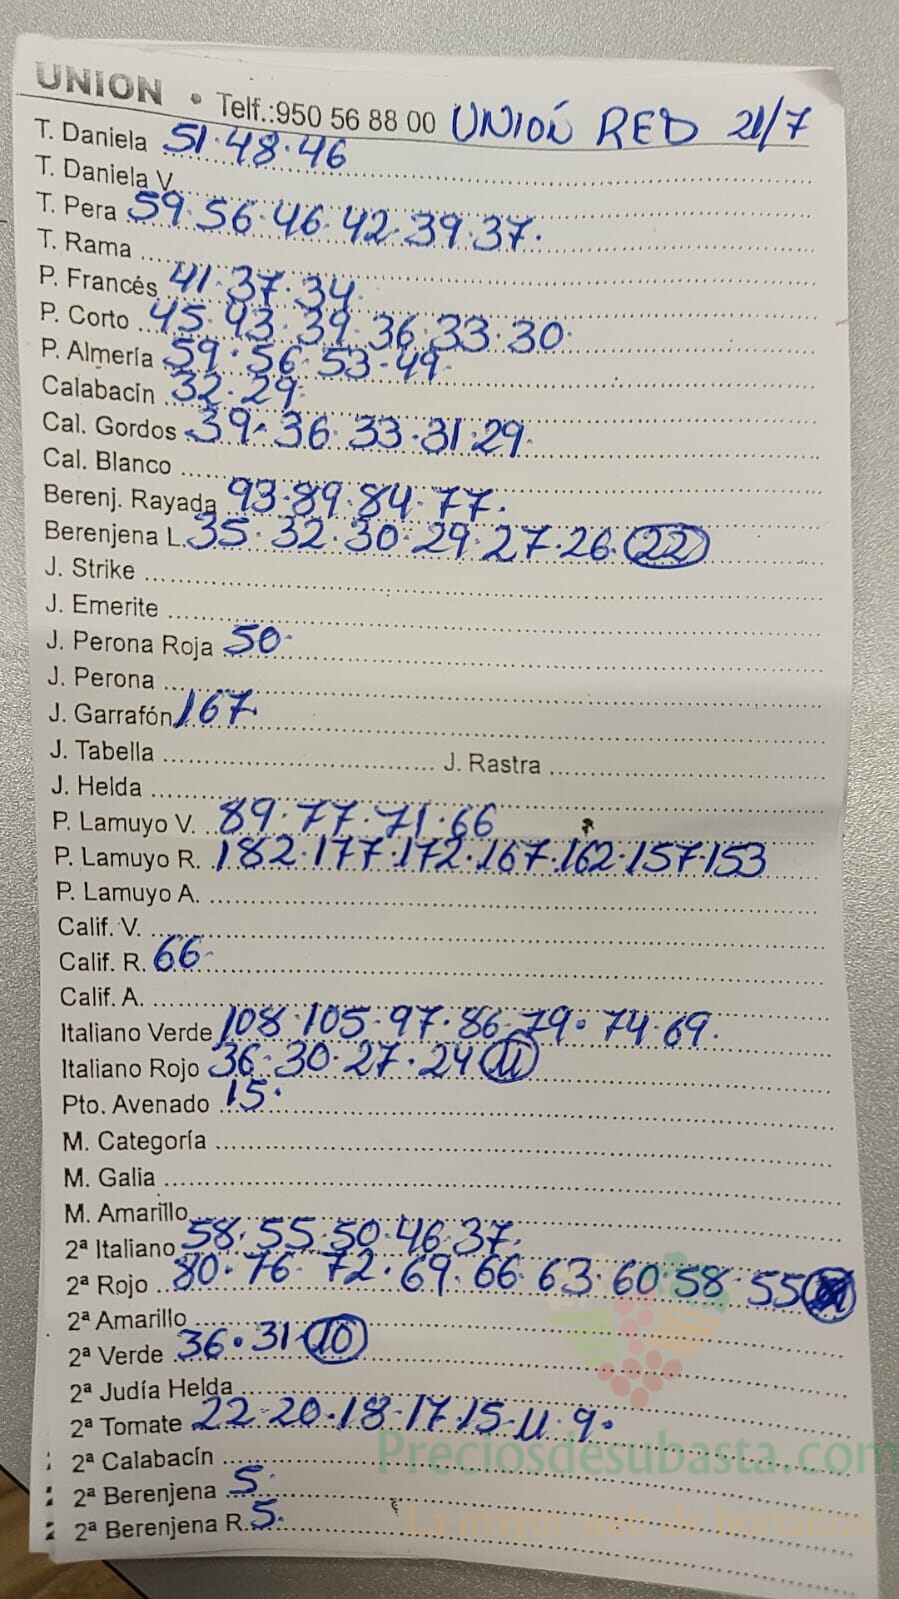 UNION • Telf.:950 56 88 00 UNIÓN RED 21/7
T. Daniela 51·48·46
T. Daniela V.
T. Pera 59·56·46·42·39·37·
T. Rama
P. Francés 41·37·34·
P. Corto 45·43·39·36·33·30·
P. Almería 59·56·53·49·
Calabacín 32·29·
Cal. Gordos 39·36·33·31·29·
Cal. Blanco
Berenj. Rayada 93·89·84·77·
Berenjena L. 35·32·30·29·27·26·22
J. Strike
J. Emerite
J. Perona Roja 50·
J. Perona
J. Garrafón 167·
J. Tabella J. Rastra
J. Helda
P. Lamuyo V. 89·77·71·66
P. Lamuyo R. 182·177·172·167·162·157·153
P. Lamuyo A.
Calif. V.
Calif. R. 66·
Calif. A.
Italiano Verde 108·105·97·86·79·74·69·
Italiano Rojo 36·30·27·24 11
Pto. Avenado 15·
M. Categoría
M. Galia
M. Amarillo
2ª Italiano 58·55·50·46·37·
2ª Rojo 80·76·72·69·66·63·60·58·55
2ª Amarillo
2ª Verde 36·31·10
2ª Judía Helda
2ª Tomate 22·20·18·17·15·11·9·
2ª Calabacín
Preciosdesubasta.com
2ª Berenjena 5·
2ª Berenjena R. 5·
La mayor web de hortalizas